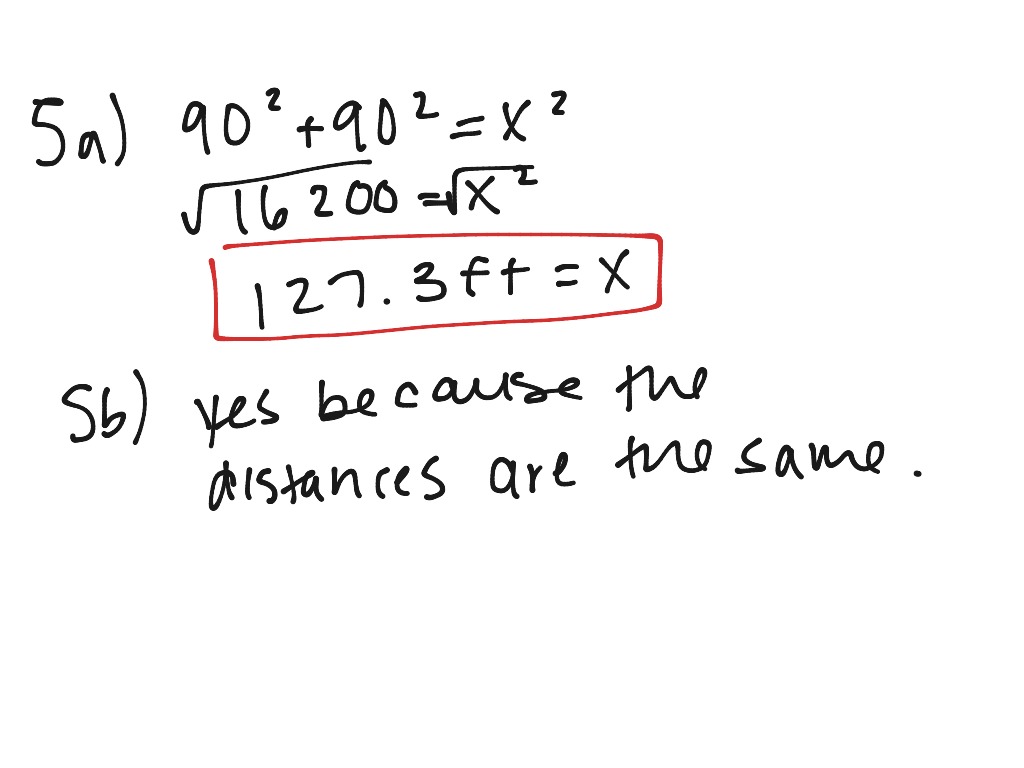 5a) 90² + 90² = x²
√16200 = √x²
127.3 ft = x
5b) yes because the
distances are the same.